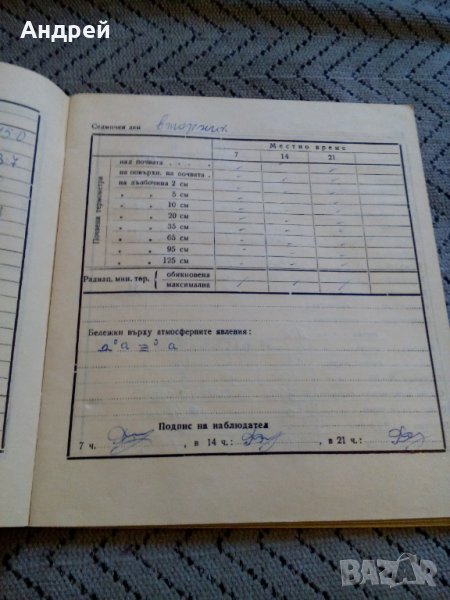 Андрей
150
37
Седмичен ден вторник
Местно време
7 14 21
Почвени термометри
над почвата . . . .
на повърхн. на почвата .
на дълбочина 2 см
" " 5 см
" " 10 см
" " 20 см
" " 35 см
" " 65 см
" " 95 см
" " 125 см
Радиац. мин. тер. { обикновена
максимална
Бележки върху атмосферните явления:
Подпис на наблюдател
7 ч. , в 14 ч.: , в 21 ч.:
BAZAR